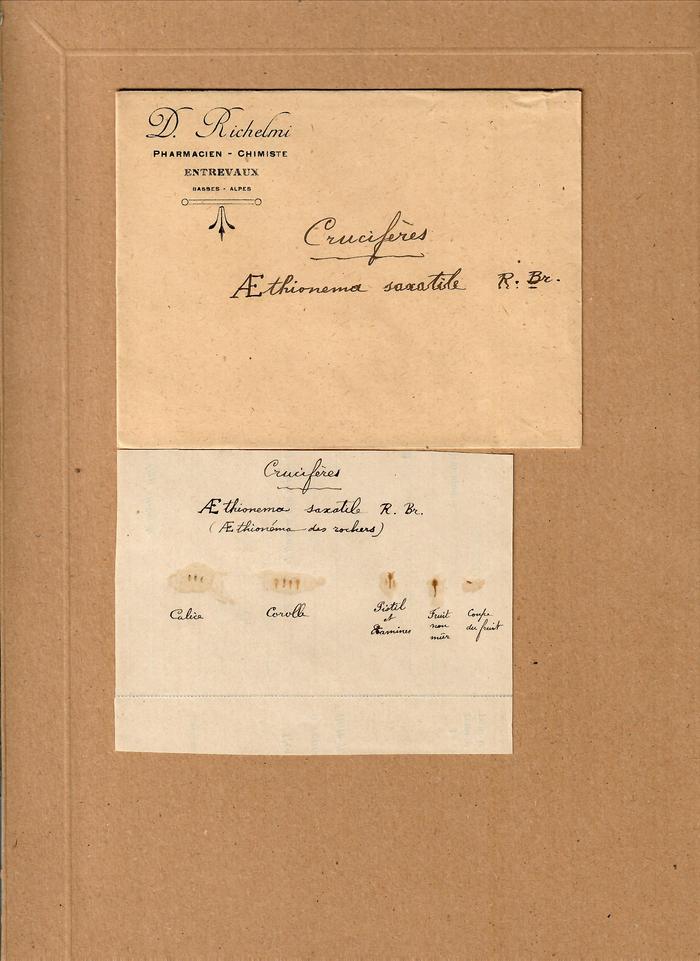 D. Richelmi
PHARMACIEN - CHIMISTE
ENTREVAUX
BASSES - ALPES
Crucifères
Æthionema saxatile R. Br.
Crucifères
Æthionema saxatile R. Br.
(Æthionéma des rochers)
Calice
Corolle
Pistil
et
Étamines
Fruit
non
mûr
Coupe
du fruit